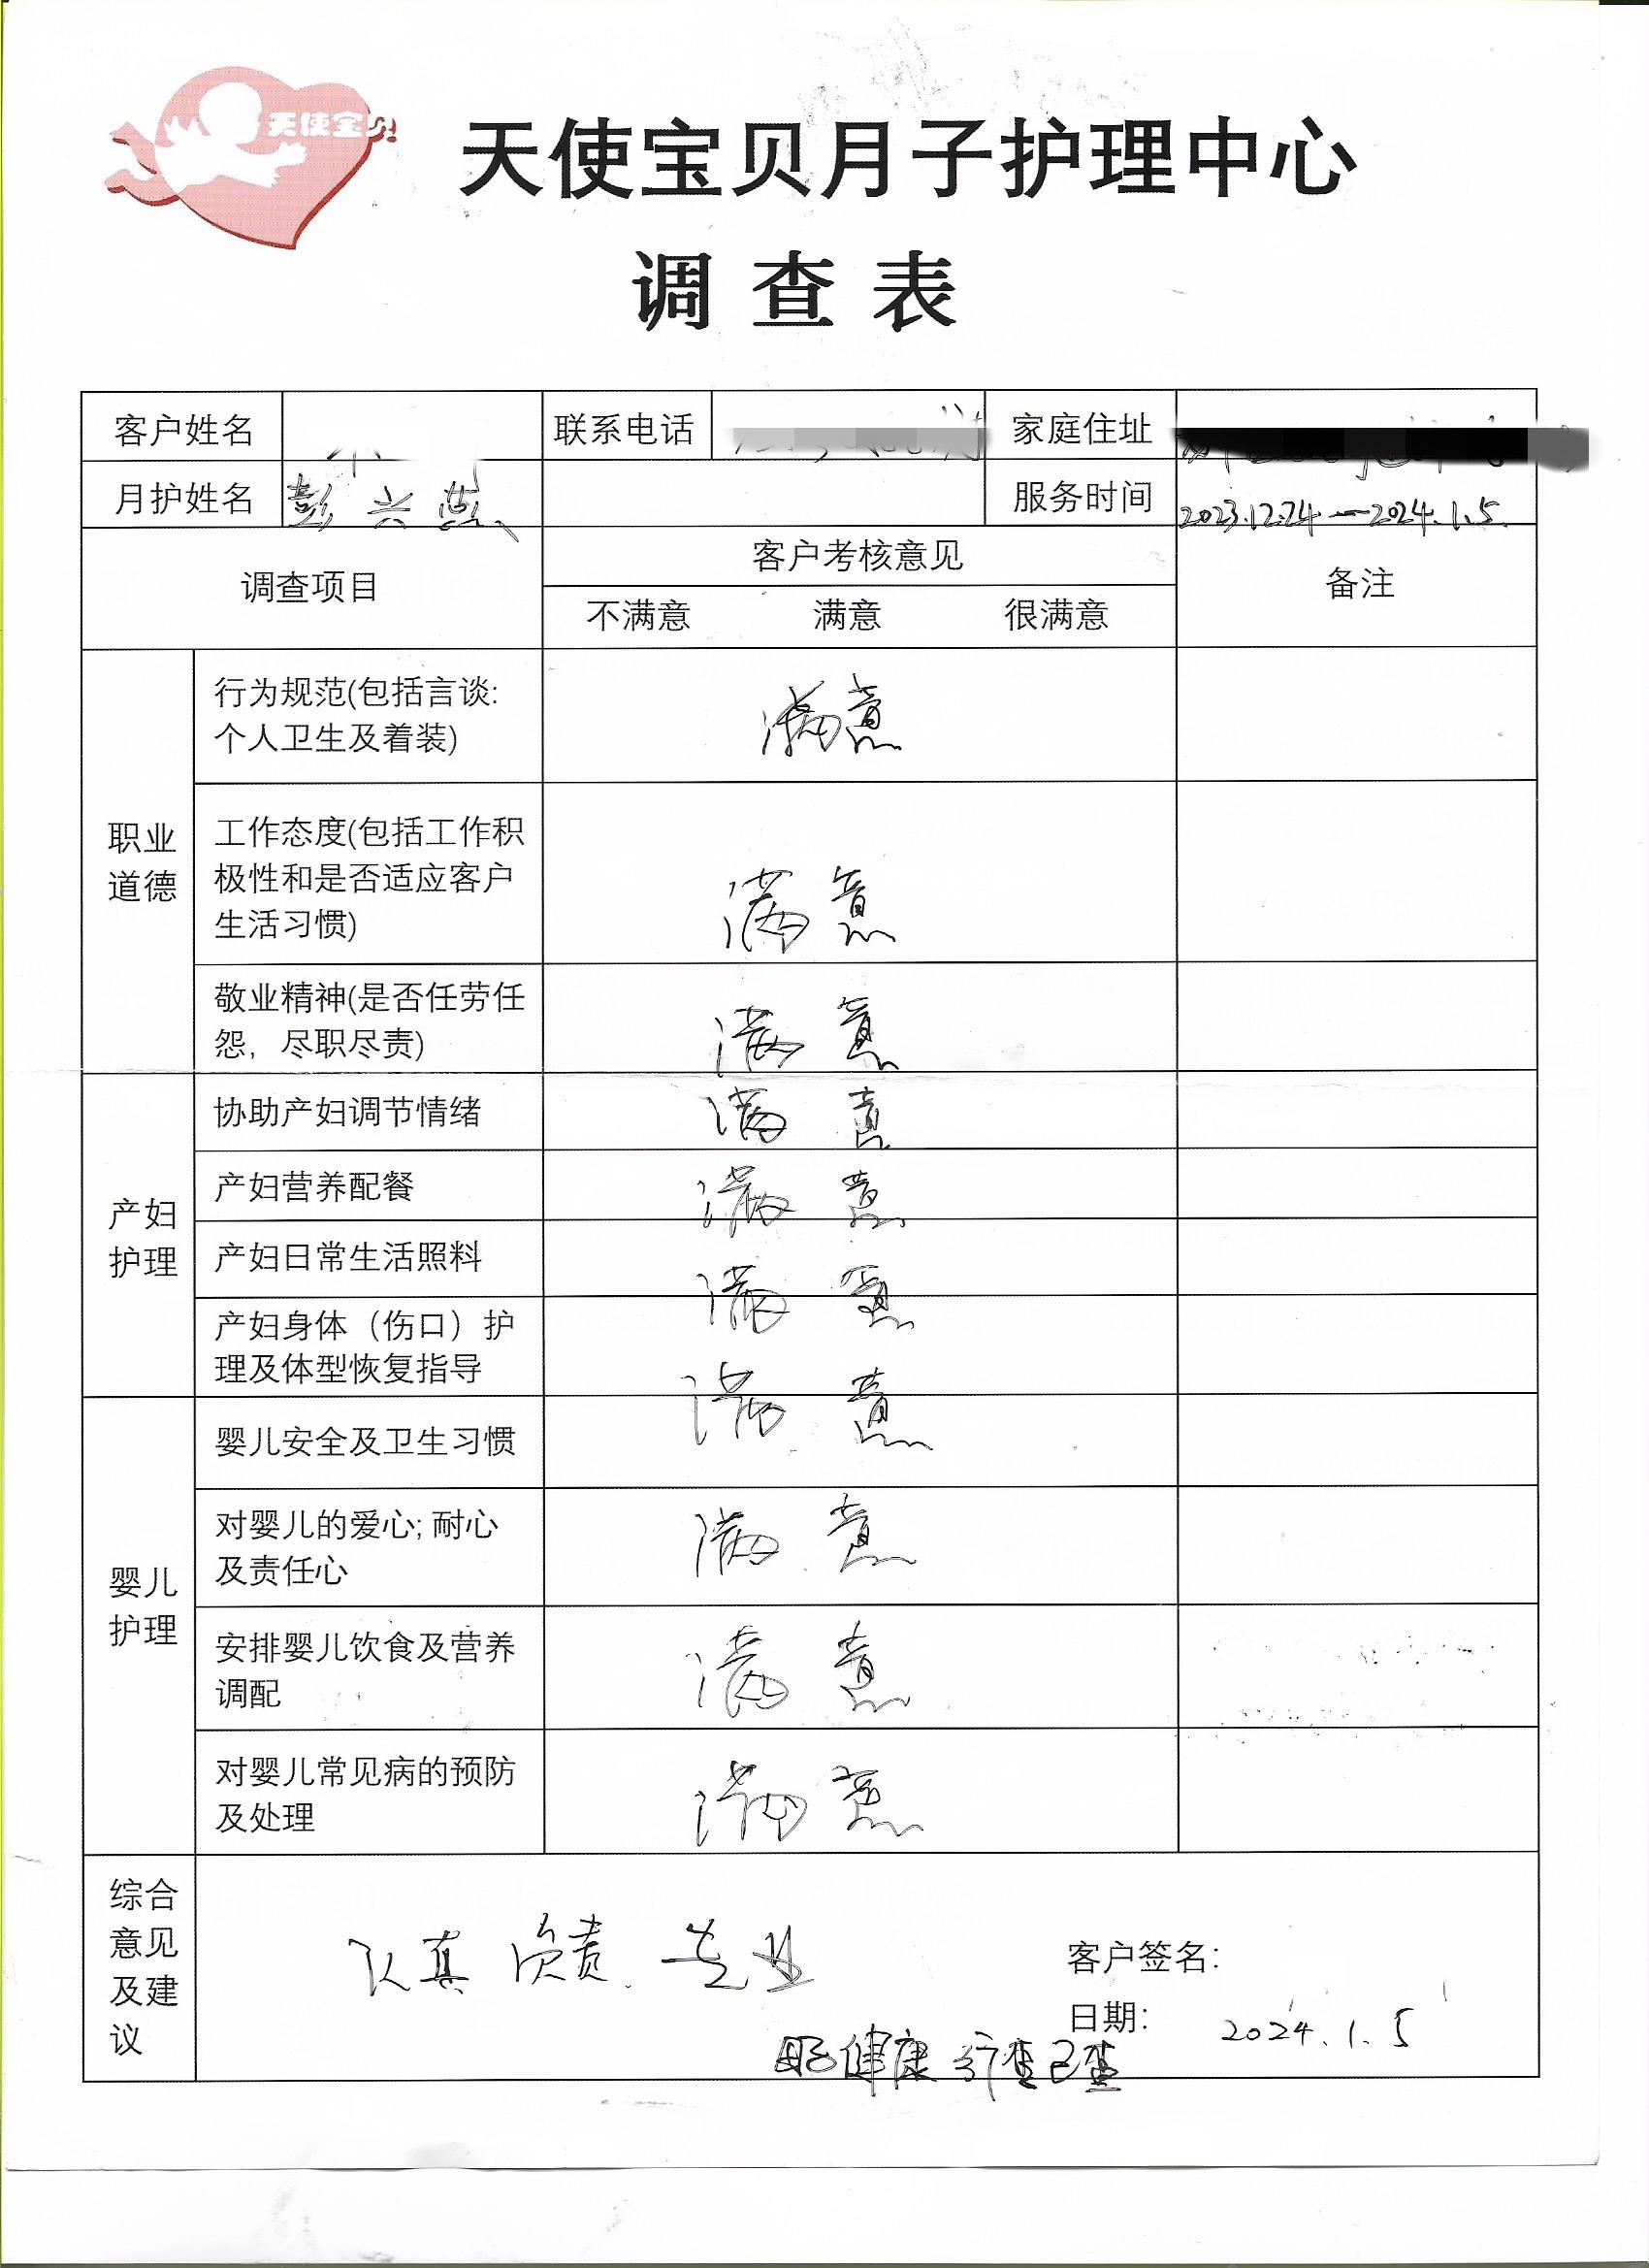 天使宝贝
天使宝贝月子护理中心
调查表
客户姓名 联系电话 家庭住址
月护姓名 彭兴燕 服务时间 2023.12.24—2024.1.5.
调查项目 客户考核意见 备注
不满意 满意 很满意
职业道德
行为规范(包括言谈:
个人卫生及着装)
满意
工作态度(包括工作积
极性和是否适应客户
生活习惯)
满意
敬业精神(是否任劳任
怨，尽职尽责)
满意
产妇护理
协助产妇调节情绪 满意
产妇营养配餐 满意
产妇日常生活照料 满意
产妇身体（伤口）护
理及体型恢复指导
满意
婴儿护理
婴儿安全及卫生习惯
对婴儿的爱心; 耐心
及责任心
满意
安排婴儿饮食及营养
调配
满意
对婴儿常见病的预防
及处理
满意
综合
意见
及建
议
认真 负责. 专业
客户签名:
日期: 2024.1.5
健康